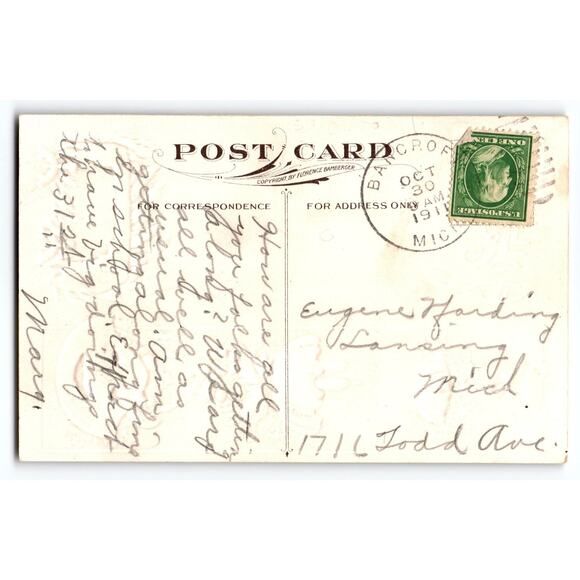 POST CARD
COPYRIGHT BY FLORENCE BAMBERGER
FOR CORRESPONDENCE
FOR ADDRESS ONLY
BANCROFT
OCT
30
AM
1911
MICH
U.S. POSTAGE
ONE CENT
Eugene Harding
Lansing
Mich
1716 Todd Ave.
How are all
your folks getting
along? We are
all well as
usual. Am
getting along fine
in school. Expect
to have big doings
the 31st.
Mary.